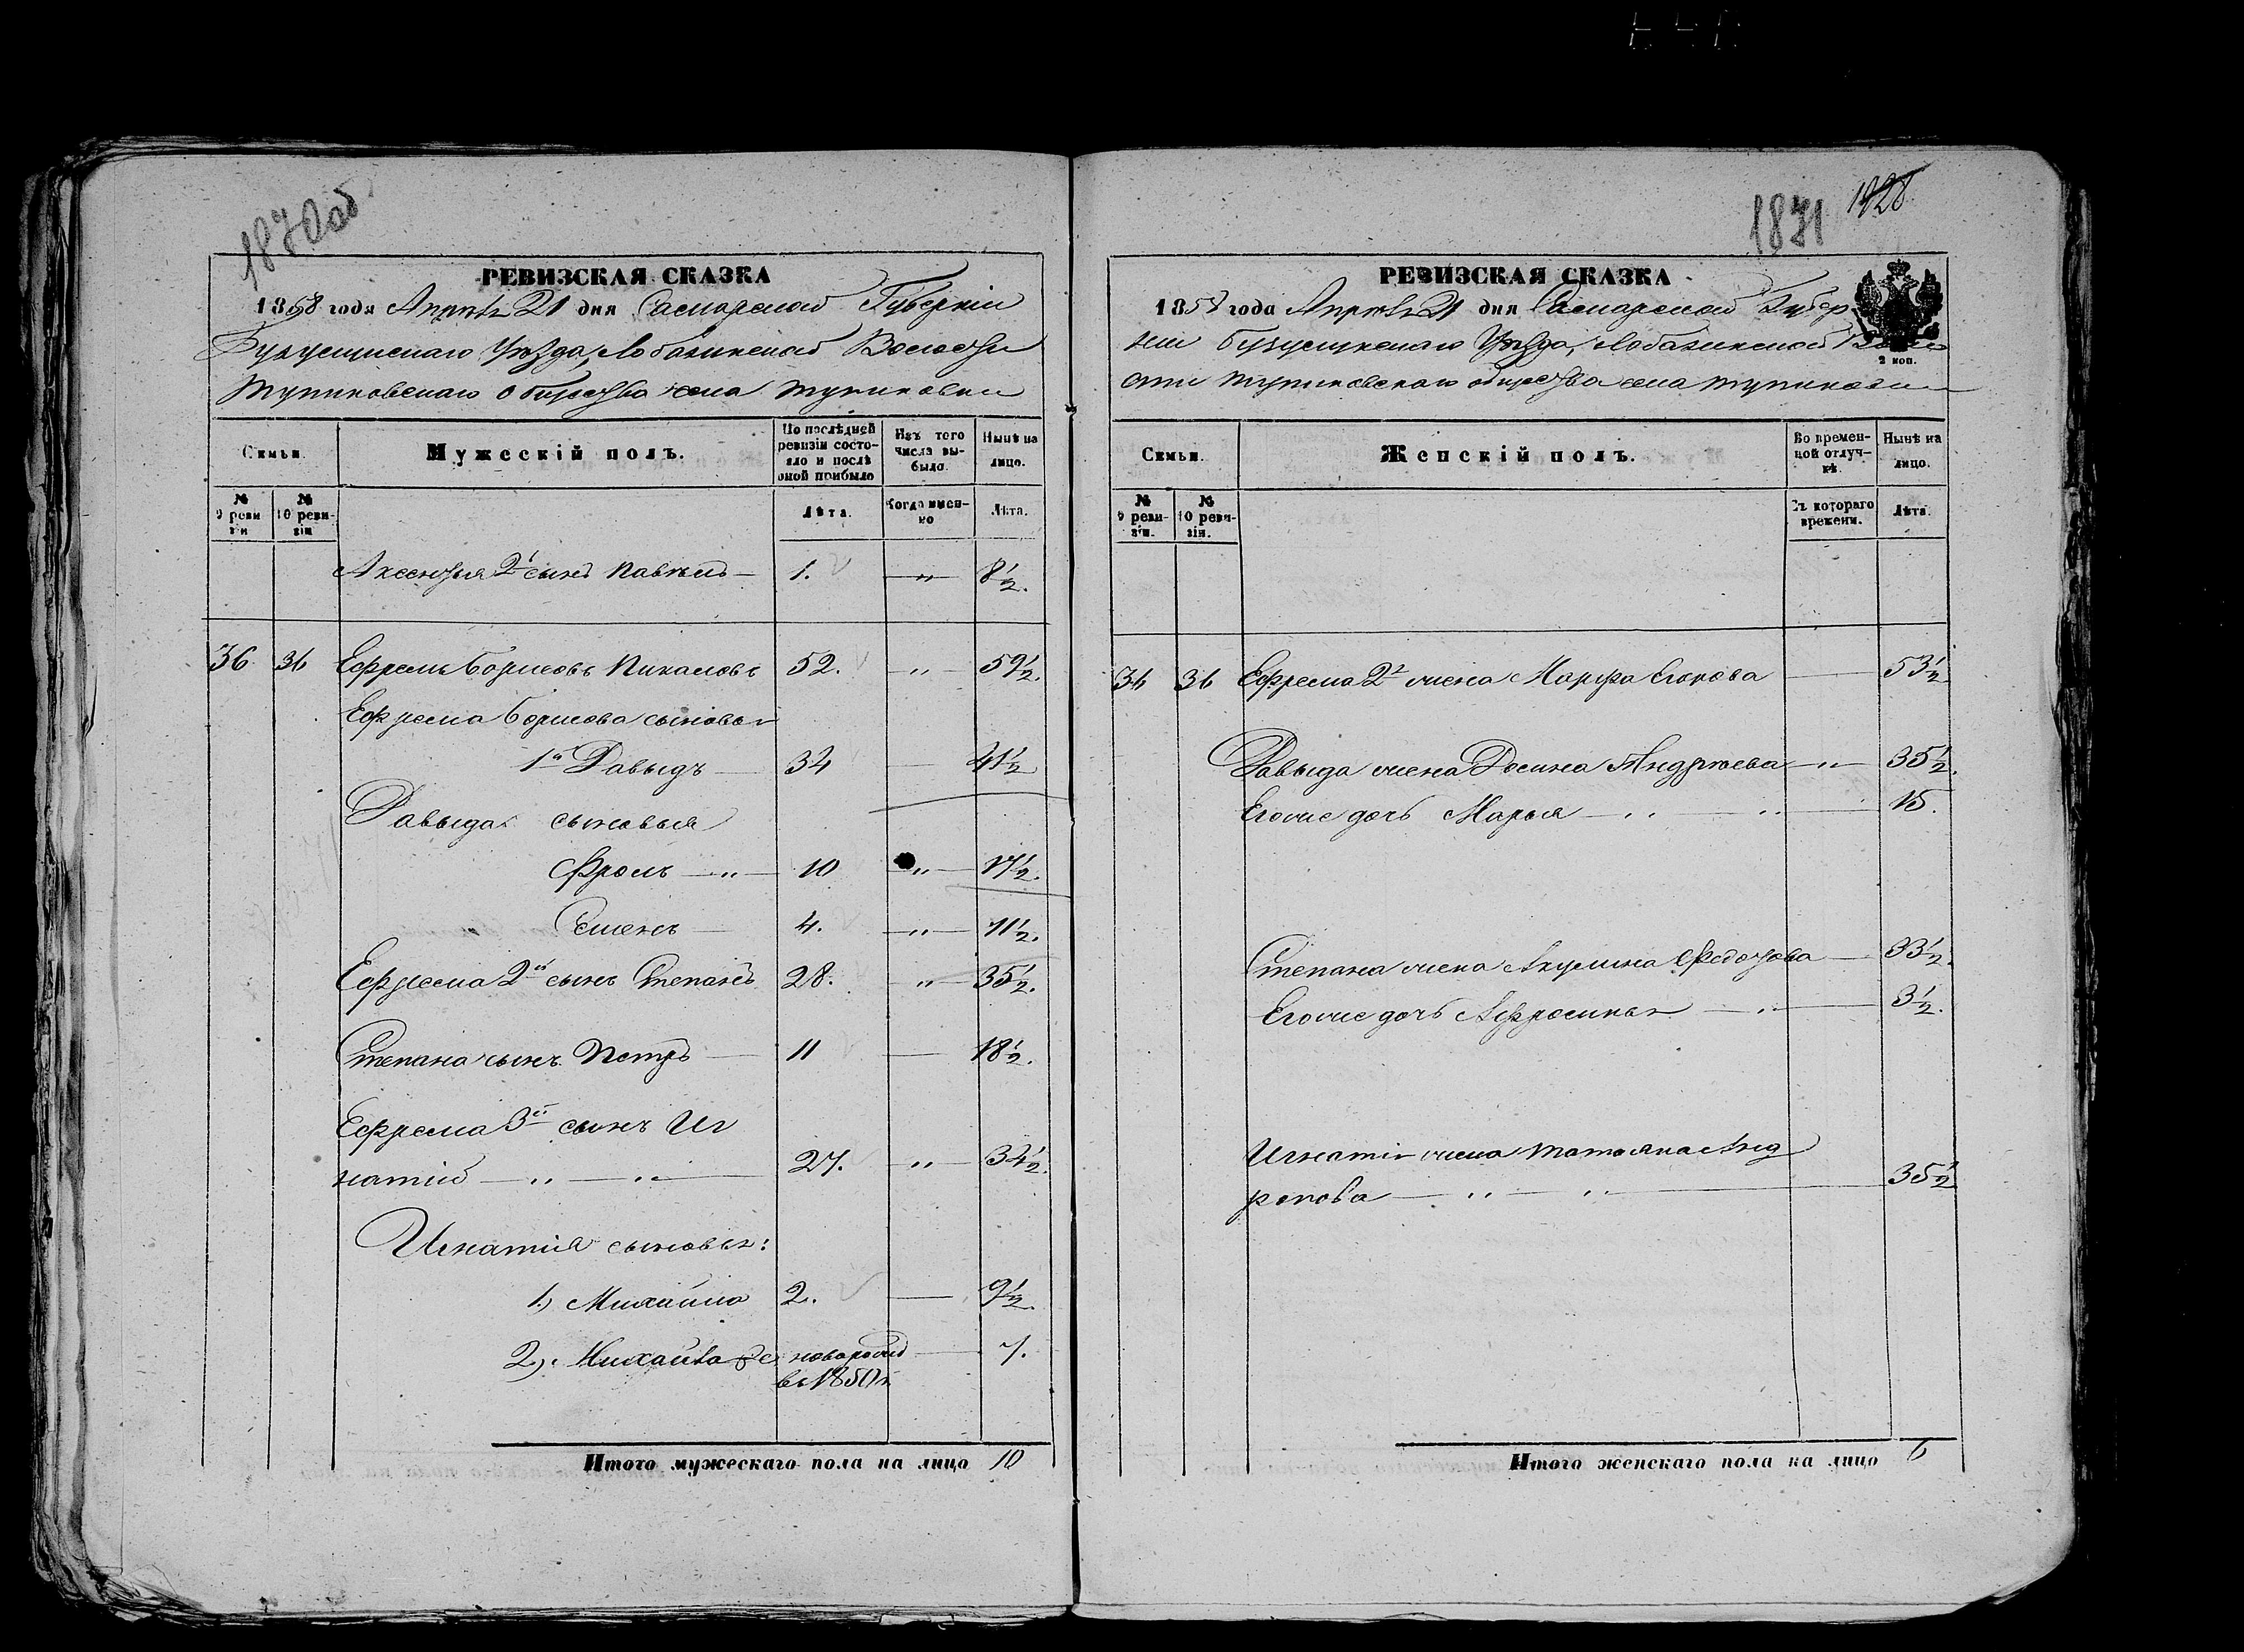 1870об
РЕВИЗСКАЯ СКАЗКА
1858 года Апрѣля 21 дня Самарской Губерніи
Бузулукскаго Уѣзда, Лобазинской Волости
Тупиковскаго общества села Тупиковки
Семьи. Мужескій полъ. По послѣдней ревизіи состояло и послѣ оной прибыло Изъ того числа выбыло. Нынѣ на лицо.
№ 9 ревизіи № 10 ревизіи Лѣта. Когда именно Лѣта.
Аксентья 2й сынъ Павелъ — 1. — " — 8 1/2.
36 36 Ефремъ Борисовъ Пикаловъ 52. — " — 59 1/2.
Ефрема Борисова сыновья
1й Давыдъ — 34 — 41 1/2
Давыда сыновья
Фролъ — " — 10 " — 17 1/2.
Семенъ — 4. — " — 11 1/2.
Ефрема 2й сынъ Степанъ 28. — " — 35 1/2.
Степана сынъ Петръ — 11 — 18 1/2.
Ефрема 3й сынъ Иг
натій — " — " — 27. — " — 34 1/2.
Игнатія сыновья:
1.) Михайла 2. — 9 1/2.
2). Михайла же новорожд — 7.
въ 1850 г.
Итого мужескаго пола на лицо 10
1871 1928
РЕВИЗСКАЯ СКАЗКА
1858 года Апрѣля 21 дня Самарской Губер
ніи Бузулукскаго Уѣзда, Лобазинской Воло
2 коп.
сти Тупиковскаго общества села Тупиковки
Семьи. Женскій полъ. Во временной отлучкѣ. Нынѣ на лицо.
№ 9 ревизіи. № 10 ревизіи. Съ котораго времени. Лѣта.
36 36 Ефрема 2я жена Марфа Егорова — 53 1/2
Давыда жена Андреева — " — 35 1/2.
Его же дочь Марья — " — " — 15.
Степана жена Акулина Федотова — 33 1/2.
Его же дочь Афросинья — " — 3 1/2.
Игнатія жена Татьяна Анд
ронова — " — " — 35 1/2
Итого женскаго пола на лицо 6